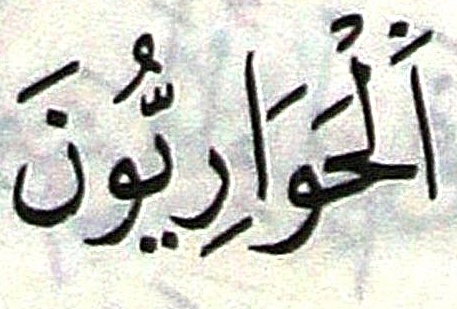 اَلْحَوَارِيُّونَ